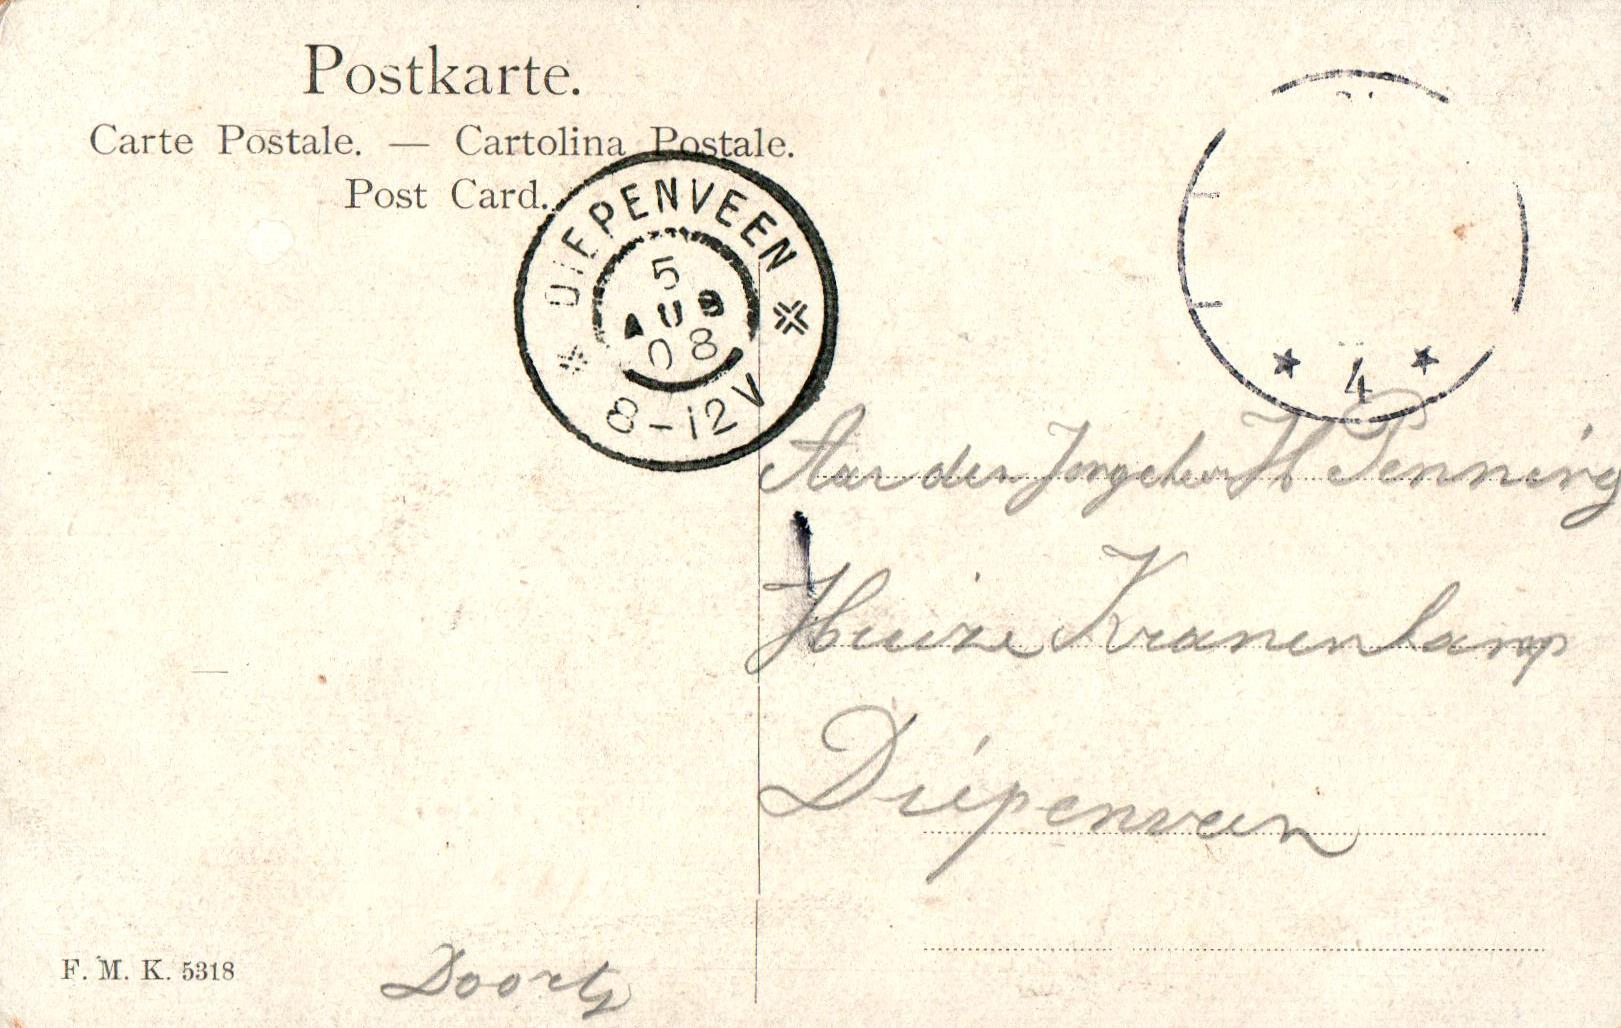 Postkarte.
Carte Postale. — Cartolina Postale.
Post Card.
DIEPENVEEN
5
AUG
08
8-12V
4
Aan den Jongeheer H Penning
Huize Kranenkamp
Diepenveen
F. M. K. 5318